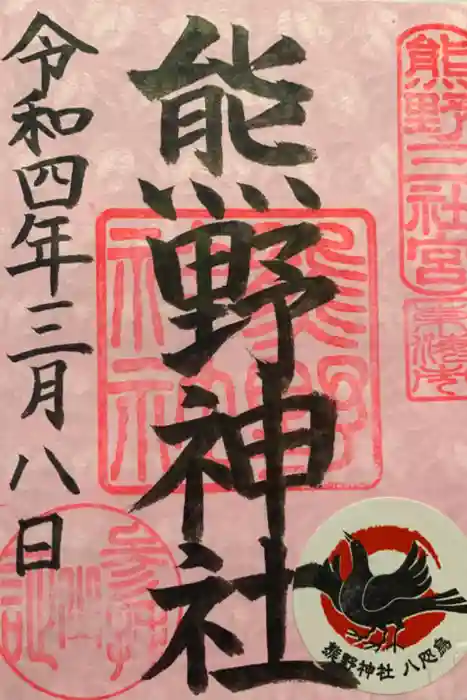 熊野三社宮
熊野神社
令和四年三月八日
熊野神社
参拝記
熊野神社 八咫烏